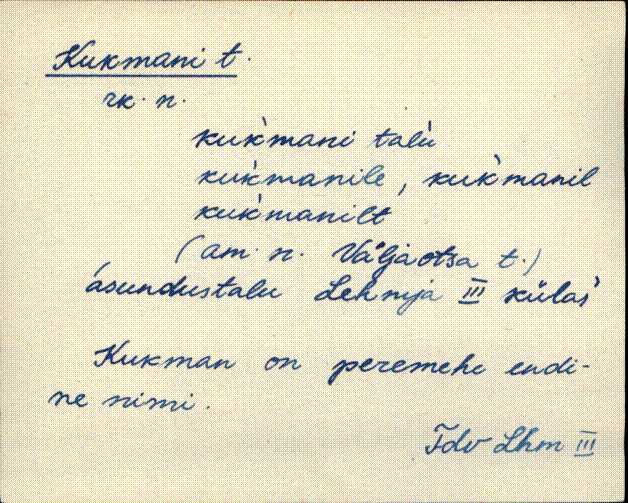 Kukmani t.
rk. n.
kuk̀mani talù
kuk̀manile, kuk̀manil
kuk̀manilt
(am. n. Väljaotsa t.)
asundustalu Lehmja III külas
Kukman on peremehe endi-
ne nimi.
Lhm III